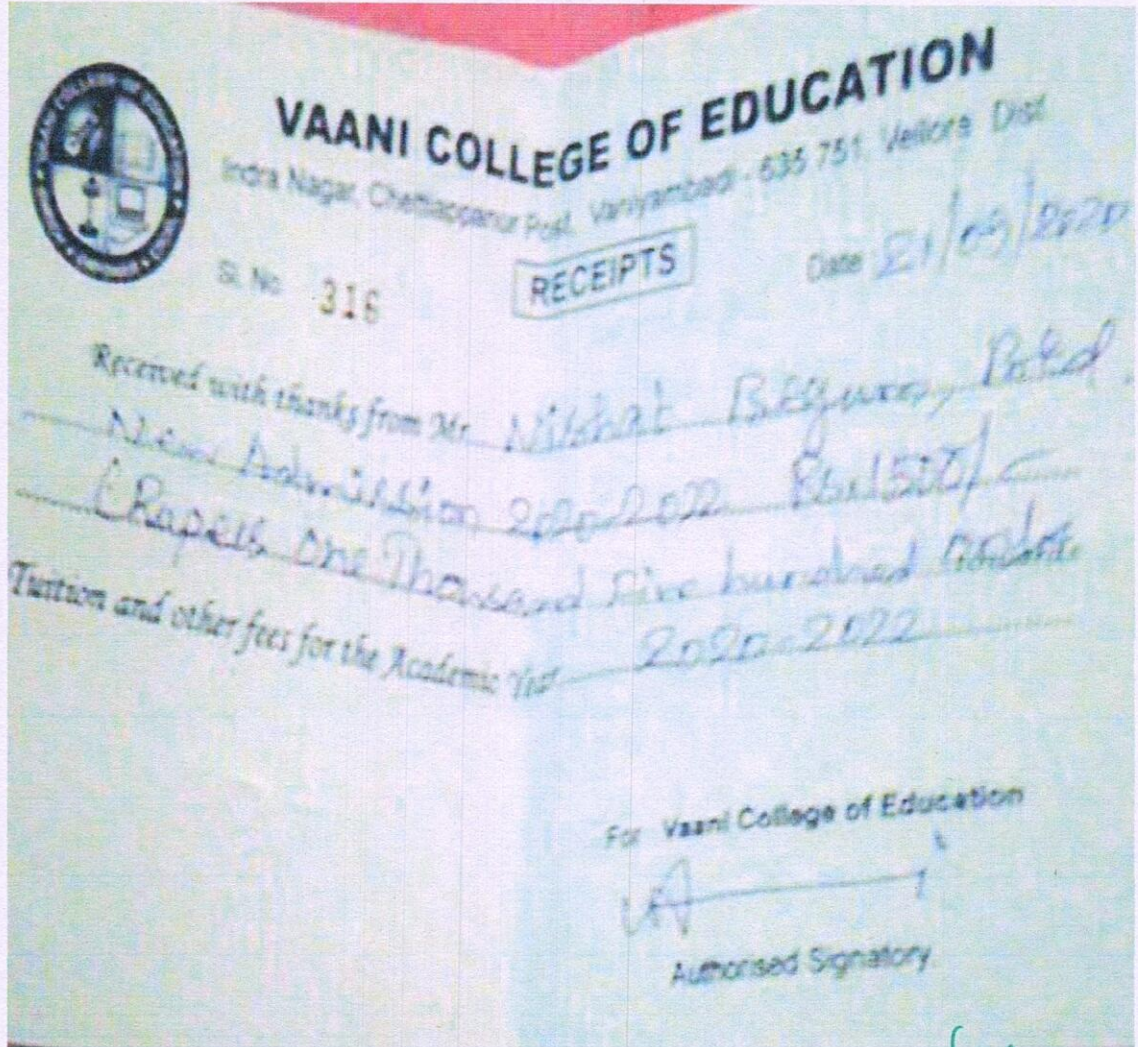 VAANI COLLEGE OF EDUCATION
Indra Nagar, Chettiappanur Post, Vaniyambadi - 635 751, Vellore Dist.
Sl. No. 316
RECEIPTS
Date 21/09/2020
Received with thanks from Mr. Nikhat
New Admission 2020-2022 Rs.1500/-
(Rupees One Thousand Five hundred
Tuition and other fees for the Academic Year 2020-2022
For Vaani College of Education
Authorised Signatory